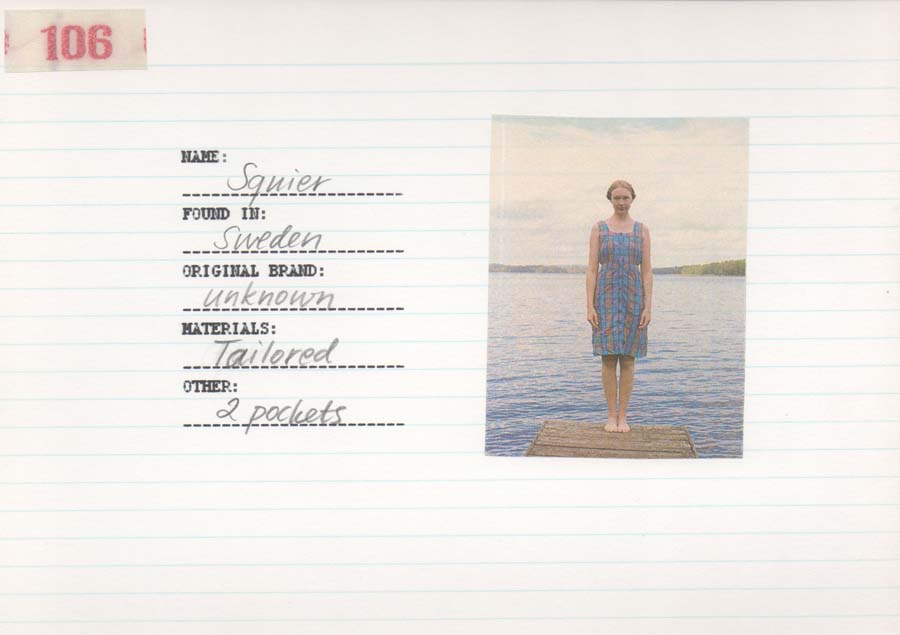 106
NAME:
Squier
FOUND IN:
Sweden
ORIGINAL BRAND:
unknown
MATERIALS:
Tailored
OTHER:
2 pockets